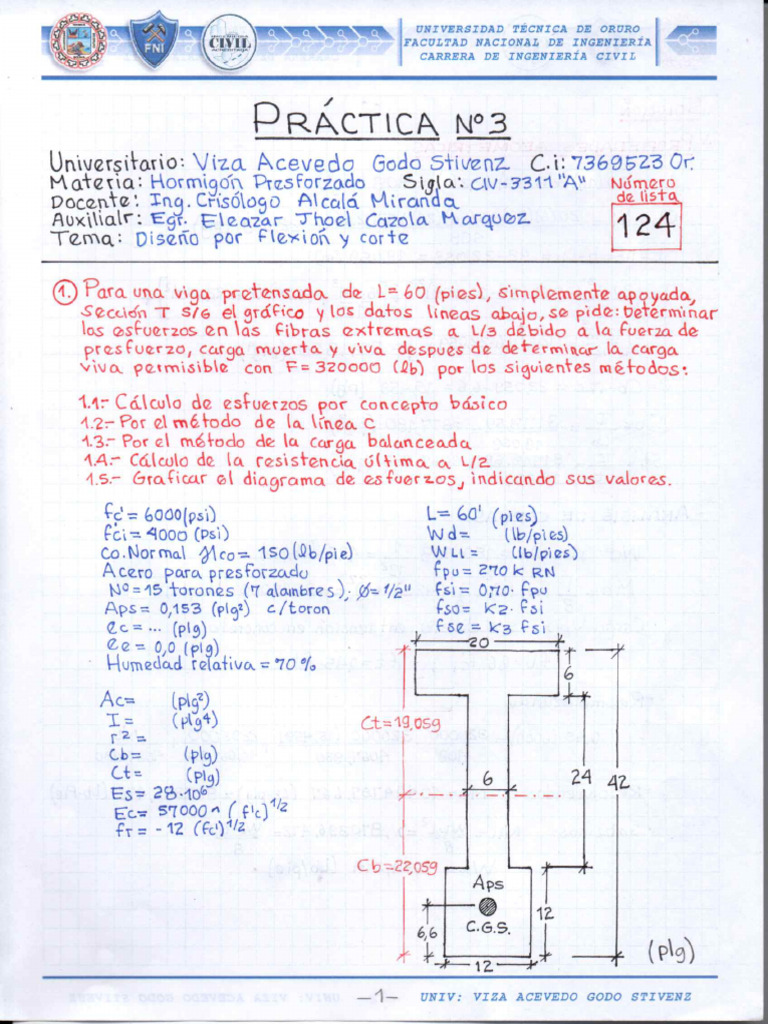 UNIVERSIDAD TÉCNICA DE ORURO
FACULTAD NACIONAL DE INGENIERÍA
CARRERA DE INGENIERÍA CIVIL
FNI
CIVIL
PRÁCTICA Nº3
Universitario: Viza Acevedo Godo Stivenz C.i: 7369523 Or.
Materia: Hormigón Presforzado Sigla: CIV-3311 "A"
Docente: Ing. Crisólogo Alcalá Miranda
Auxilialr: Egr. Eleazar Jhoel Cazola Marquez
Tema: Diseño por flexión y corte
Número
de lista
124
1. Para una viga pretensada de L=60 (pies), simplemente apoyada,
sección T s/G el gráfico y los datos líneas abajo, se pide: Determinar
los esfuerzos en las fibras extremas a L/3 debido a la fuerza de
presfuerzo, carga muerta y viva después de determinar la carga
viva permisible con F=320000 (lb) por los siguientes métodos:
1.1.- Cálculo de esfuerzos por concepto básico
1.2.- Por el método de la línea C
1.3.- Por el método de la carga balanceada
1.4.- Cálculo de la resistencia última a L/2
1.5.- Graficar el diagrama de esfuerzos, indicando sus valores.
fc'= 6000 (psi)
fci = 4000 (psi)
Co. Normal γco = 150 (lb/pie)
Acero para presforzado
Nº=15 torones (7 alambres); Ø=1/2"
Aps = 0,153 (plg²) c/toron
ec=... (plg)
ee = 0,0 (plg)
Humedad relativa = 70%
L= 60' (pies)
Wd= (lb/pies)
WLl = (lb/pies)
fpu = 270 K RN
fsi = 0,70· fpu
fso = K2· fsi
fse = K3 fsi
Ac= (plg²)
I = (plg⁴)
r² =
Cb = (plg)
Ct = (plg)
Es = 28·10⁶
Ec = 57000 ^ (f'c)^1/2
fr = -12 (fc')^1/2
20
6
Ct=19,059
6
24
42
Cb=22,059
Aps
C.G.S.
6,6
12
12
(plg)
-1-
UNIV: VIZA ACEVEDO GODO STIVENZ